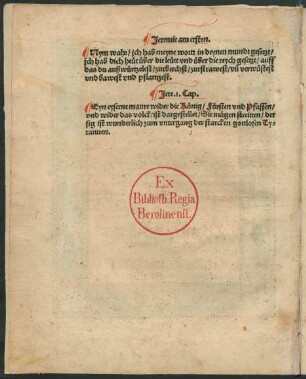 ¶ Jeremie am ersten.
¶ Nym wahr/ jch hab meyne wort in deynen mundt gesetzt/
jch hab dich heüt über die leüt vnd über die reych gesetzt/ auff
das du auß wurtzelest/ zubrechst/ zurstrawest/ vñ verwüstest
vnd bawest vnd pflantzest.
¶ Jere. 1. Cap.
¶ Eyn eyserne maur wider die König/ Fürsten vnd Pfaffen/
vnd wider das volck/ ist dargestellet/ Die mügen streitten/ der
sig ist wunderlich zum vntergang der starcken gottlosen Ty-
rannen.
Ex
Biblioth. Regia
Berolinensi.